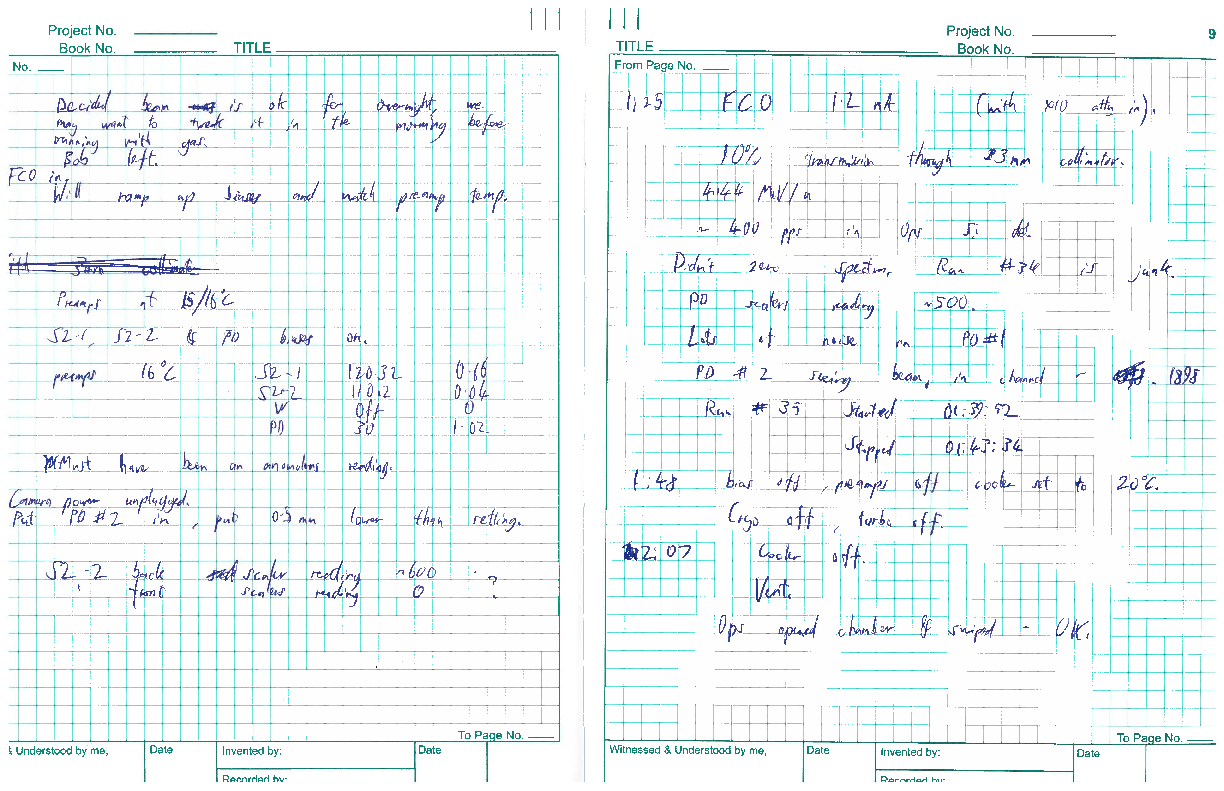 Project No.
Book No. TITLE
No.
Decided beam is ok for overnight, we
may want to tweak it in the morning before
running with gas.
Bob left.
FCO in.
Will ramp up biases and watch preamp temp.
Preamps at 15/16°C
S2-1, S2-2 & PD biases on.
preamps 16°C S2-1 120.32 0.16
S2-2 110.2 0.04
W Off 0
PD 30 1.02
Must have been an anomalous reading.
Camera power unplugged.
Put PD #2 in, put 0.5 mm lower than setting.
S2-2 back scaler reading ~600
front scalers reading 0 ?
To Page No.
& Understood by me, Date Invented by: Date
Recorded by:
TITLE
Project No.
Book No.
9
From Page No.
1:25 FCO 1.2 nA (with x10 attn in).
10% transmission through 3mm collimator.
4.144 MeV/u
~ 400 pps in Ops Si det.
Didn't zero spectra, Run #34 is junk.
PD scalers reading ~500.
Lots of noise on PD#1
PD #2 seeing beam, in channel ~ 1895
Run #35 Started 01:39:52
Stopped 01:43:34
1:48 bias off, preamps off cooler set to 20°C.
Cryo off, turbo off.
2:07 Cooler off.
Vent.
Ops opened chamber & swiped - OK.
To Page No.
Witnessed & Understood by me, Date Invented by: Date
Recorded by: